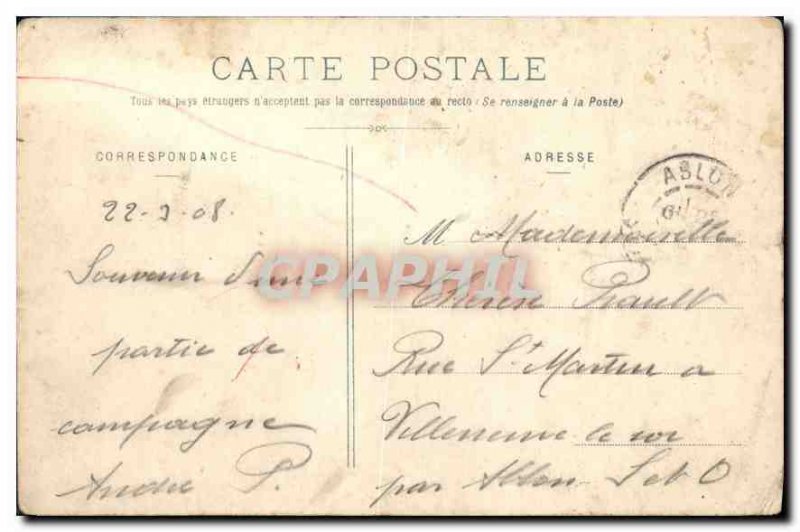 CARTE POSTALE
Tous les pays étrangers n'acceptent pas la correspondance au recto (Se renseigner à la Poste)
CORRESPONDANCE
22-9-08.
Souvenir d'une
partie de
campagne
André P.
ADRESSE
ABLON
M Mademoiselle
Therese Prault
Rue St Martin a
Villeneuve le roi
par Ablon S et O
CPAPHIL